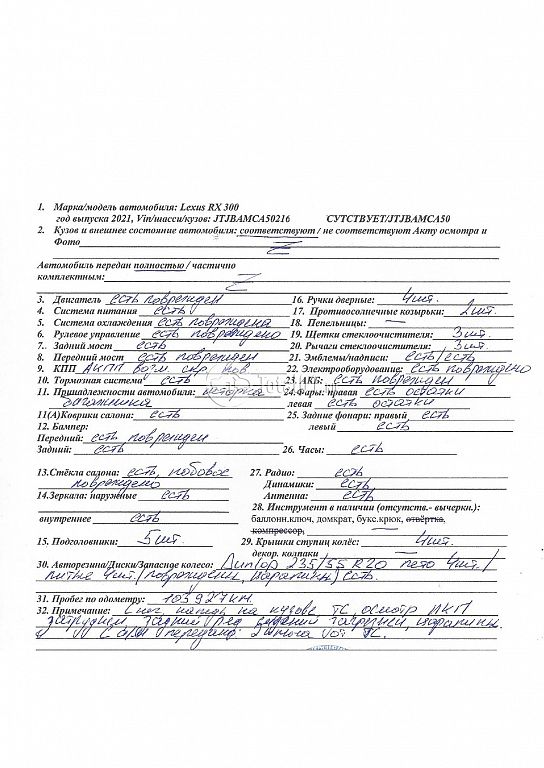 1. Марка/модель автомобиля: Lexus RX 300
год выпуска 2021, Vin/шасси/кузов: JTJBAMCA50216 СУТСТВУЕТ/JTJBAMCA50
2. Кузов и внешнее состояние автомобиля: соответствуют / не соответствуют Акту осмотра и
Фото
Автомобиль передан полностью / частично
комплектным:
3. Двигатель есть поврежден 16. Ручки дверные: 4шт.
4. Система питания есть 17. Противосолнечные козырьки: 2шт.
5. Система охлаждения есть повреждена 18. Пепельницы: —
6. Рулевое управление есть повреждено 19. Щетки стеклоочистителя: 3шт.
7. Задний мост есть 20. Рычаги стеклоочистителя: 3шт.
8. Передний мост есть поврежден 21. Эмблемы/надписи: есть/есть
9. КПП АКПП возм. скр. пов 22. Электрооборудование: есть повреждено
10. Тормозная система есть 23. АКБ: есть поврежден
11. Принадлежности автомобиля: шторка 24.Фары: правая есть остатки
багажника левая есть остатки
11(А)Коврики салона: есть 25. Задние фонари: правый есть
12. Бампер: левый есть
Передний: есть поврежден
Задний: есть 26. Часы: есть
13.Стёкла салона: есть, лобовое 27. Радио: есть
повреждено Динамики: есть
14.Зеркала: наружные есть Антенна: есть
28. Инструмент в наличии (отсутств.- вычеркн.):
внутреннее есть баллонн.ключ, домкрат, букс.крюк, отвёртка,
компрессор,
15. Подголовники: 5шт. 29. Крышки ступиц колёс: 4шт.
декор. колпаки —
30. Авторезина/Диски/Запасное колесо: Дunlop 235/55 R20 лето 4шт./
литые 4шт. (повреждены, царапины) есть.
31. Пробег по одометру: 103927км.
32. Примечание: на кузове ТС, осмотр ЛКП
затруднен, задний ряд сидений царапины
и ТС.